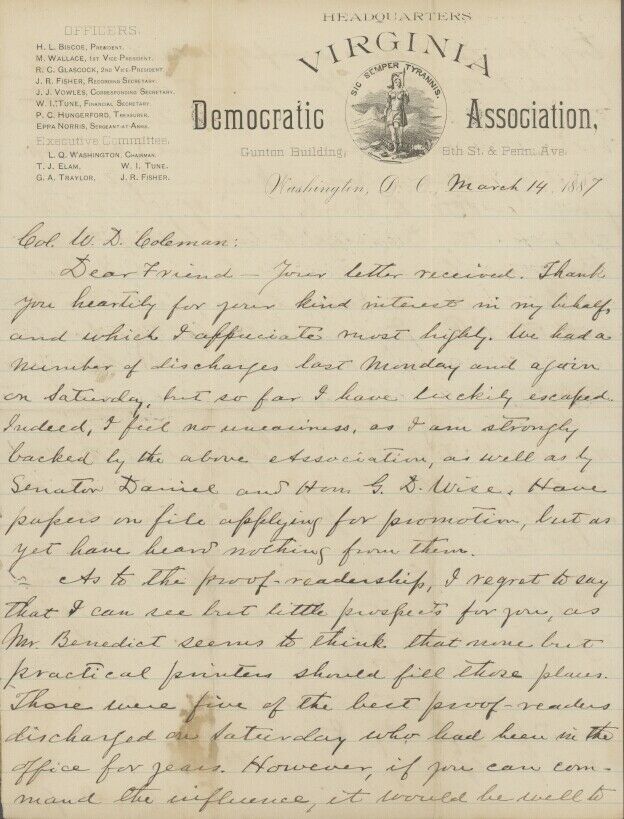 OFFICERS.
H. L. BISCOE, PRESIDENT.
M. WALLACE, 1ST VICE-PRESIDENT.
R. C. GLASCOCK, 2ND VICE-PRESIDENT.
J. R. FISHER, RECORDING SECRETARY.
J. J. VOWLES, CORRESPONDING SECRETARY.
W. I. TUNE, FINANCIAL SECRETARY.
P. C. HUNGERFORD, TREASURER.
EPPA NORRIS, SERGEANT-AT-ARMS.
Executive Committee.
L. Q. WASHINGTON, CHAIRMAN.
T. J. ELAM. W. I. TUNE.
G. A. TRAYLOR. J. R. FISHER.
HEADQUARTERS
VIRGINIA
SIC SEMPER TYRANNIS.
Democratic Association,
Gunton Building, 6th St. & Penn. Ave.
Washington, D. C., March 14, 1887
Col. W. D. Coleman:
Dear Friend — Your letter received. Thank
you heartily for your kind interest in my behalf,
and which I appreciate most highly. We had a
number of discharges last Monday and again
on Saturday, but so far I have luckily escaped.
Indeed, I feel no uneasiness, as I am strongly
backed by the above Association, as well as by
Senator Daniel and Hon. G. D. Wise. Have
papers on file applying for promotion, but as
yet have heard nothing from them.
As to the proof-readership, I regret to say
that I can see but little prospects for you, as
Mr. Benedict seems to think that none but
practical printers should fill those places.
There were five of the best proof-readers
discharged on Saturday who had been in the
office for years. However, if you can com-
mand the influence, it would be well to